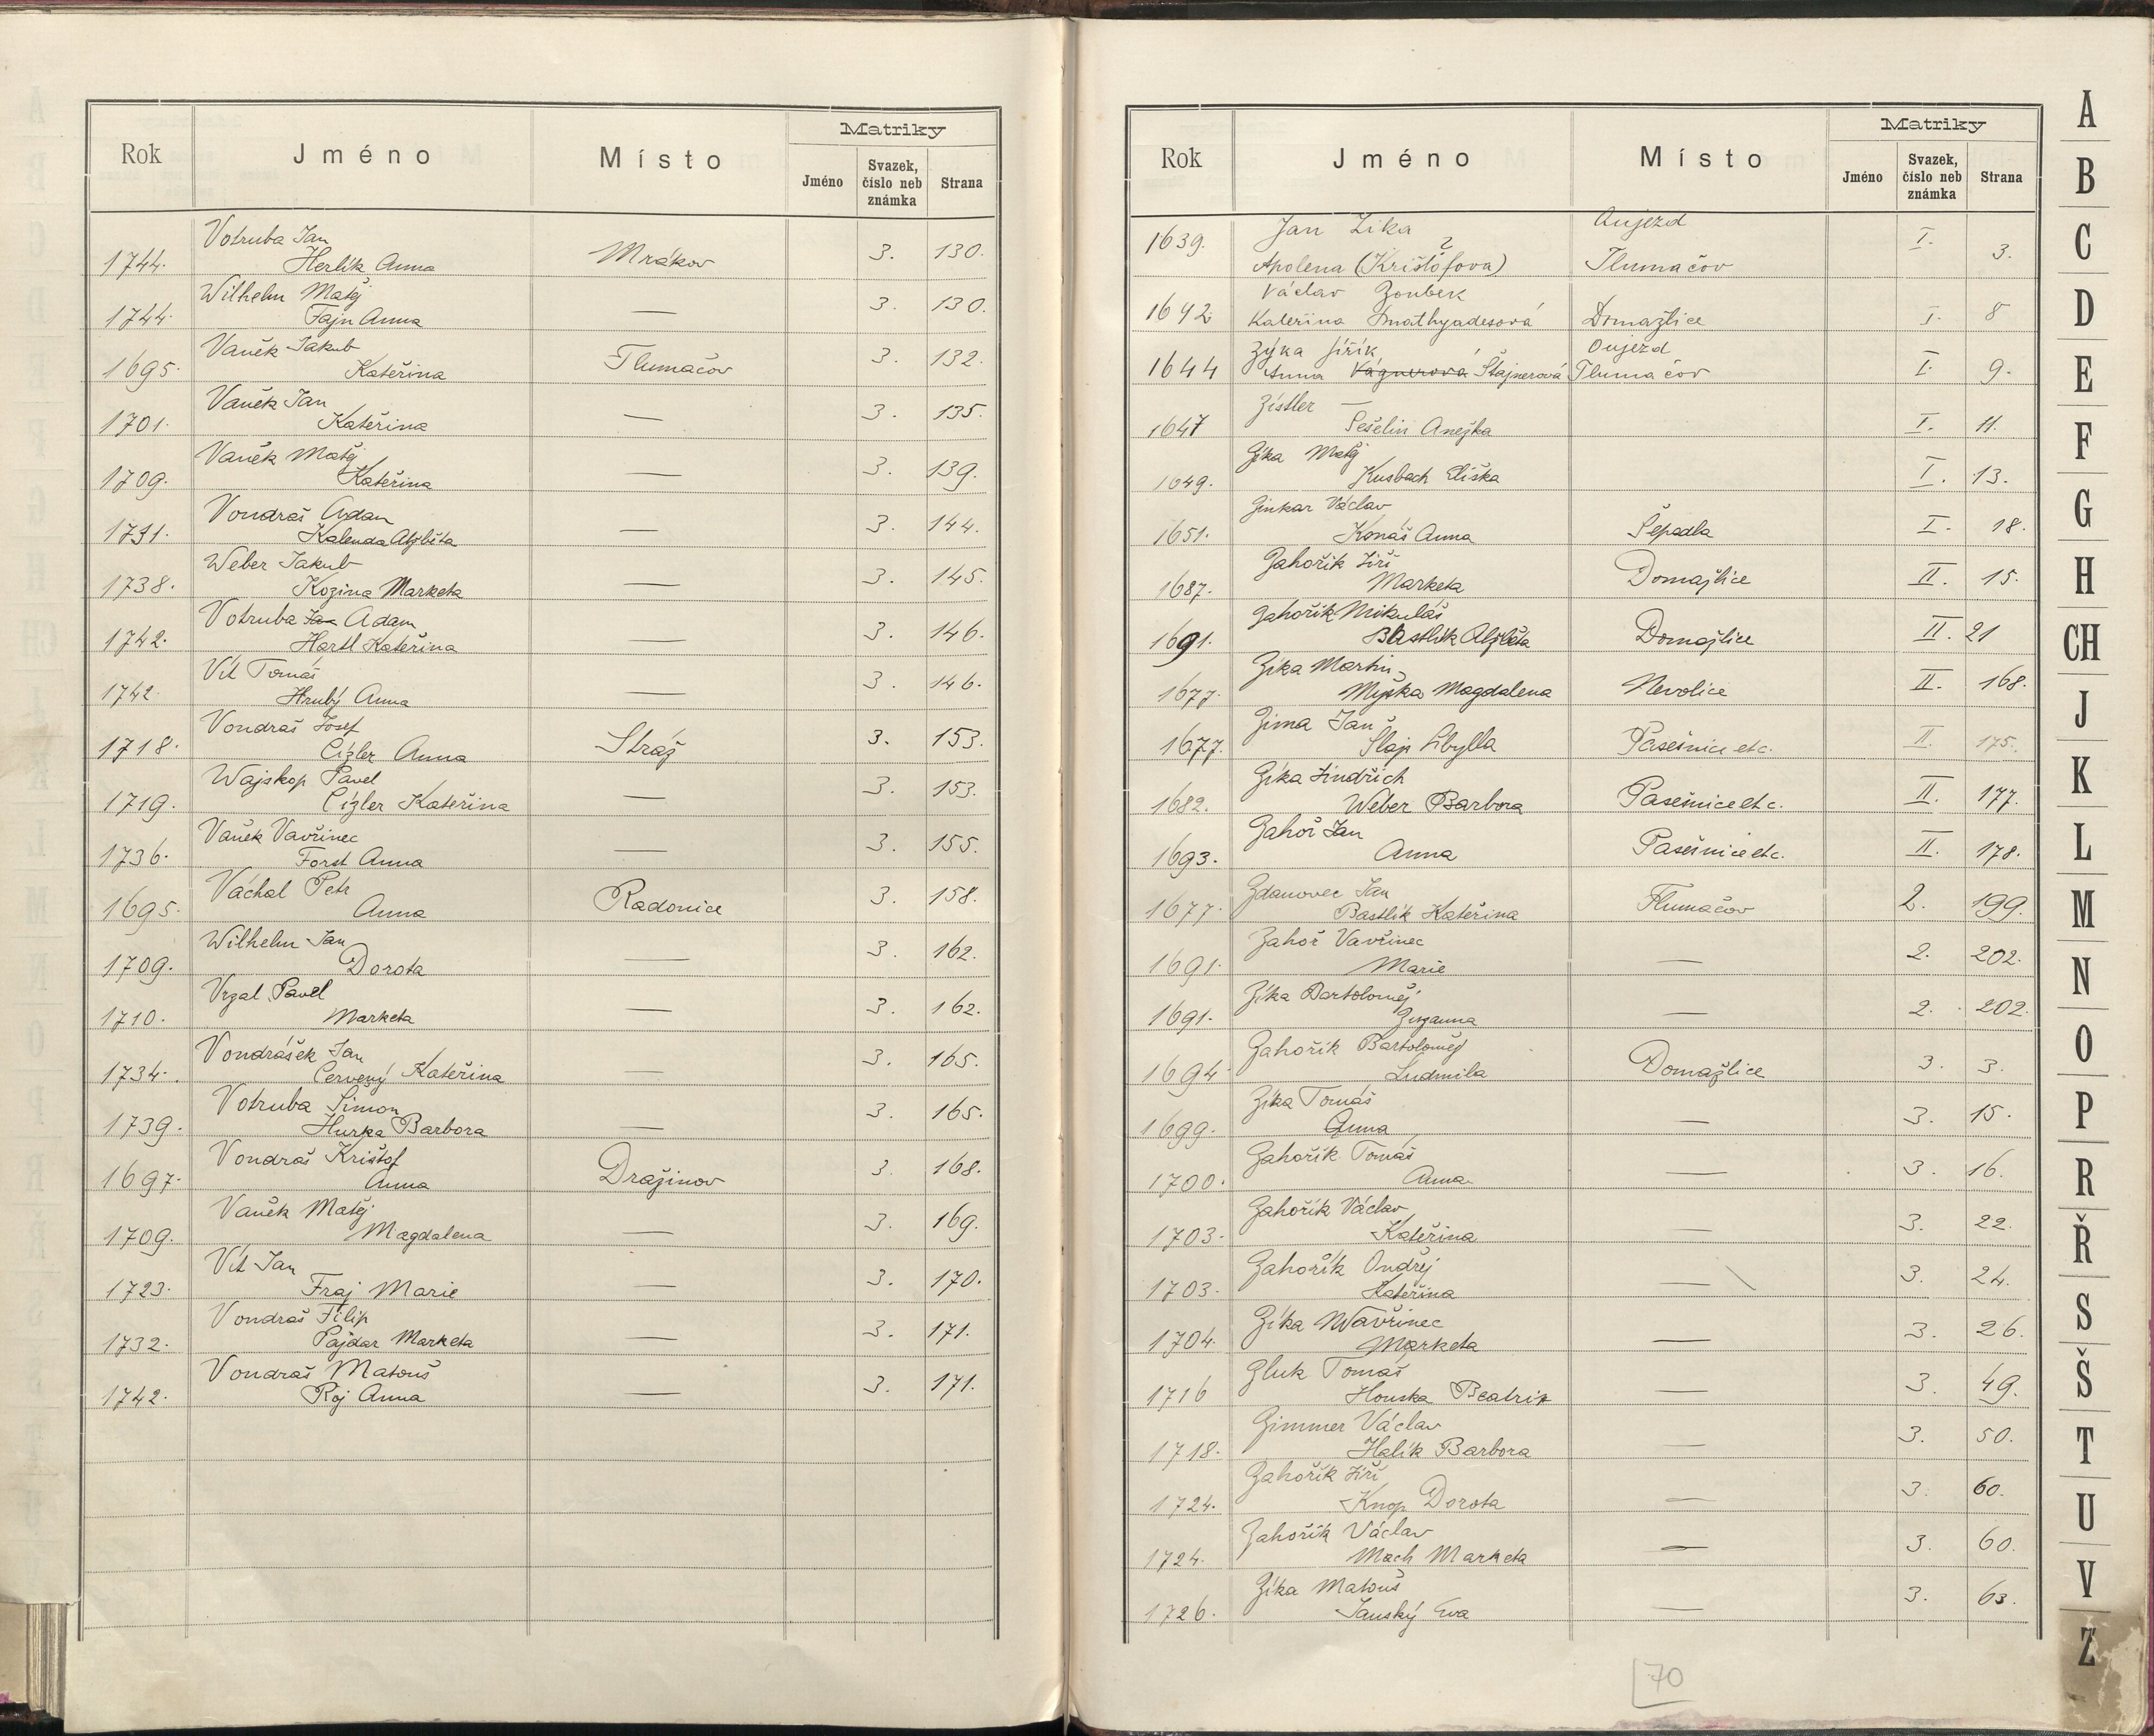 Rok Jméno Místo Matriky
Jméno Svazek, číslo neb známka Strana
Votruba Jan
1744. Herlík Anna Mrákov 3. 130.
Wilhelm Matěj
1744. Fajn Anna — 3. 130.
Vaněk Jakub
1695. Kateřina Tlumačov 3. 132.
Vaněk Jan
1701. Kateřina — 3. 135.
Vaněk Matěj
1709. Kateřina — 3. 139.
Vondraš Adam
1731. Kalenda Alžběta — 3. 144.
Weber Jakub
1738. Kozina Marketa — 3. 145.
Votruba Jan Adam
1742. Hartl Kateřina — 3. 146.
Vít Tomáš
1742. Hrubý Anna — 3. 146.
Vondraš Josef
1718. Cizler Anna Stráž 3. 153.
Wajskop Pavel
1719. Cizler Kateřina — 3. 153.
Vaněk Vavřinec
1736. Forst Anna — 3. 155.
Váchal Petr
1695. Anna Radonice 3. 158.
Wilhelm Jan
1709. Dorota — 3. 162.
Vrzal Pavel
1710. Marketa — 3. 162.
Vondrášek Jan
1734. Červený Kateřina — 3. 165.
Votruba Šimon
1739. Hurka Barbora — 3. 165.
Vondraš Krištof
1697. Anna Dražinov 3. 168.
Vaněk Matěj
1709. Magdalena — 3. 169.
Vít Jan
1723. Fraj Marie — 3. 170.
Vondraš Filip
1732. Pajdar Marketa — 3. 171.
Vondraš Matouš
1742. Roj Anna — 3. 171.
Rok Jméno Místo Matriky
Jméno Svazek, číslo neb známka Strana
Jan Zika Aujezd
1639. Apolena (Krištofova) ? Tlumačov I. 3.
Václav Zoubek
1642 Kateřina Domažlice I. 8
Zýka Jiřík Oujezd
1644 Anna Vágnerová Štajnerová Tlumačov I. 9.
Zístler —
1647 Šešelin Anežka I. 11.
Zíka Matěj
1649. Kusbach Eliška I. 13.
Zinkar Václav
1651. Konáš Anna Šepadla I. 18.
Zahořík Jiří
1687. Marketa Domažlice II. 15.
Zahořík Mikuláš
1691. Bastlík Alžběta Domažlice II. 21
Zíka Martin
1677. Magdalena Nevolice II. 168.
Zima Jan
1677. Šlajs Sibylla Pasečnice etc. II. 175.
Zíka Jindřich
1682. Weber Barbora Pasečnice etc. II. 177.
Zahoř Jan
1693. Anna Pasečnice etc. II. 178.
Zdanovec Jan
1677. Bastlík Kateřina Tlumačov 2. 199.
Zahoř Vavřinec
1691. Marie — 2. 202.
Zíka Bartoloměj
1691. Zuzanna — 2. 202.
Zahořík Bartoloměj
1694 Ludmila Domažlice 3. 3.
Zíka Tomáš
1699. Anna — 3. 15.
Zahořík Tomáš
1700. Anna — 3. 16.
Zahořík Václav
1703. Kateřina — 3. 22.
Zahořík Ondřej
1703. Kateřina — 3. 24.
Zíka Wavřinec
1704. Marketa — 3. 26.
Zluk Tomáš
1716 Houska Beatrix — 3. 49.
Zimmer Václav
1718. Halík Barbora — 3. 50.
Zahořík Jiří
1724. Knop Dorota — 3. 60.
Zahořík Václav
1724. Mach Marketa — 3. 60.
Zíka Matouš
1726. Janský Eva — 3. 63.
70
A
B
C
D
E
F
G
H
CH
J
K
L
M
N
O
P
R
Ř
S
Š
T
U
V
Z